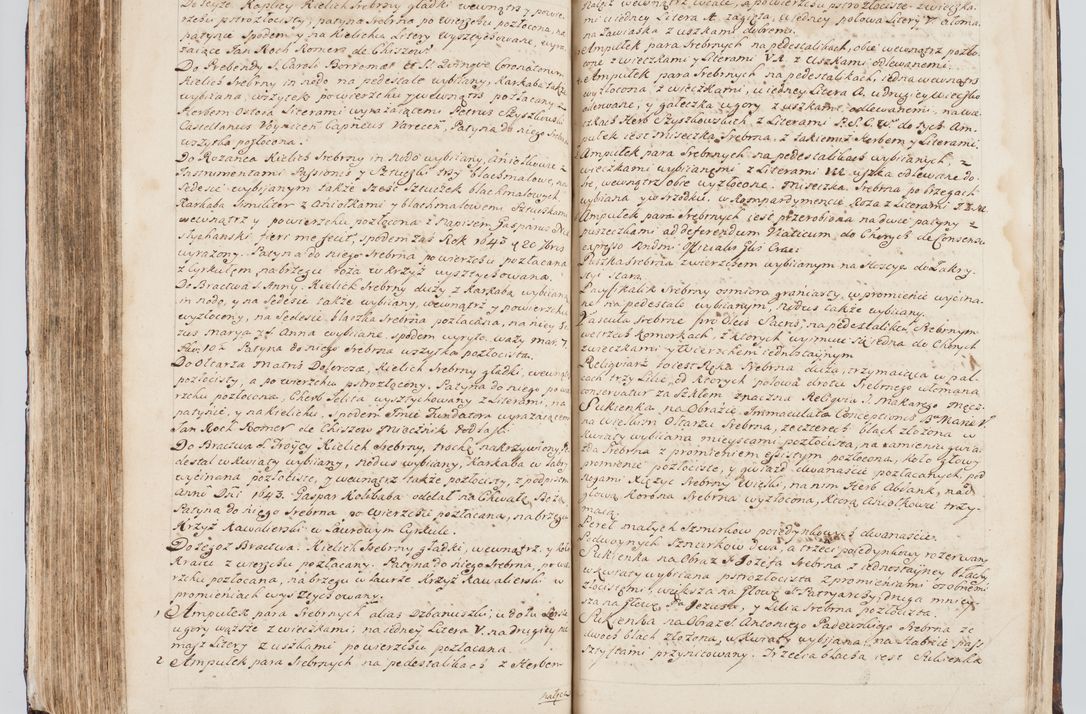 Do teyże Kaplicy Kielich Srebrny gładki wewnątrz y powie-
rzchu pstrozłocisty, patyna Srebrna po wierzchu pozłocona, na
patynie Spodem y na Kielichu Litery wysztychowane, wyra-
żaiące Jan Roch Romer de Chiszew
Do Prebendy S. Caroli Borromæi et SS. Coronatorum
Kielich Srebrny in nodo na pedestale wybiiany, Karkaba także
wybiiana, wszytek powierzchu y wewnątrz pozłacany z
Herbem Ostoia Literami wyrażaiącem Petrus Szyszkowski
Castellanus Voynicen Capitneus Varecen, Patyna do niego Srebrna
wszytka pozłocona.
Do Rożańca Kielich Srebrny in nodo wybiiany, Aniołkowie z
Instrumentami Passionis y Sztuczki trzy blachmalowe, na
Sedesie wybiianym także Sześć Sztuczek blachmalowych
Karkaba Similiter z Aniołkami y blachmalowemi Sztuczkami
wewnątrz y powierzchu pozłocona z Napisem Gasparus
fieri me fecit, Spodem zaś Rok 1643 20 Xbris
wyrażony. Patyna do niego Srebrna powierzchu pozłacana
z Cyrkułem na brzegu Łoza w krzyż wysztychowana.
Do Bractwa S. Anny. Kielich Srebrny duży z Karkabą wybiianą
in nodo, y na Sedesie także wybiiany, wewnątrz y powierzchu
wyzłocony, na Sedesie blaszka Srebrna pozłacista, na niey Je-
zus Marya y S. Anna wybiiane Spodem wyryto, waży mar. 7
102 Patyna do niego Srebrna wszytka pozłocista.
Do Ołtarza Matris Dolorosa, Kielich Srebrny gładki, wewnątrz
pozłocisty, a powierzchu pstrozłocony. Patyna do niego, powie-
rzchu pozłocona, Cherb Jelita wysztychowany z Literami, na
patynie, y na Kielichu, Spodem Imie Fundatora wyrażaiącem
Jan Roch Romer de Chiszew Miecznik Podlaski
Do Bractwa S. Troycy Kielich Srebrny, trochę nakrzywiony, Pe-
destał w Kwiaty wybiiany, Nodus wybiiany, Karkaba w
wycinana pozłociste, y wewnątrz także, pozłocisty, z podpisem
Anni Dni 1643 Gaspar Kolibaba oddał na Chwałę Bożą
Patyna do niego Srebrna powierzchu pozłacana, na brzegu
Krzyż Kawalerski w Laurowym Cyrkule.
Do tegoż Bractwa. Kielich Srebrny gładki, wewnątrz y koło
Kraiu z wierzchu pozłacany. Patyna do niego Srebrna, powie-
rzchu pozłacana, na brzegu w laurze Krzyż Kawalerski w
promieniach wysztychowany.
1 Ampułek para Srebrnych alias Dzbanuszki u dołu
ugory wąższe z wieczkami, na iedney Litera V. na Drugiey nie
masz Litery z uszkami powierzchu pozłacana.
2 Ampułek para Srebrnych na pedestalikach z Herbem

wewnątrz wcale, a powierzchu pstrozłociste z wieczka-
mi u iedney Litera A. zagięta, u iedney połowa Litery V. ułoma-
na zawiaska z uszkami dobremi.
Ampułek para Srebrnych na pedestalikach, obie wewnątrz pozło-
cone z wieczkami y Literami V.A. z uszkami odlewanemi.
Ampułek para Srebrnych na pedestalikach, iedna wewnątrz
wyzłocona, z wieczkami, u iedney Litera A. u drugiey wieczko
oderwane, y gałeczka ugory z uszkami odlewanemi, na wie-
czkach Herb Szyszkowskich z Literami P.S.C.W. do tych Am-
pułek iest Miseczka Srebrna, z takiemiż Herbem y Literami.
Ampułek para Srebrnych na pedestalikach wybiianych, z
wieczkami wybiianemi z Literami uszka odlewane do-
bre, wewnątrz obie wyzłocone. Miseczka Srebrna po brzegach
wybiiana y w srodku, w Kompartymencie Roza z Literami
Ampułek para Srebrnych iest przerobiona na dwie patyny z
puszeczkami ad deferendum Viaticum do Chorych de Consensu
expresso Rndmi Officialis Glis Cracs
Puszka Srebrna z wierzchem wybiianym na Hostye do Zakry-
styi stara.
Pacyfikalik Srebrny osmiora graniasty, w promienie wycina-
ne na pedestale wybiianym, Nodus także wybiiany.
Vascula Srebrne pro Oleis Sacris, na pedestaliku Srebrnym
we trzech komorkach, z ktorych wyimuie się iedna do Chorych
z wieczkami y wierzchem iednostaynym
Religwiarz to iest Ręka Srebrna duża, trzymaiąca w pal-
cach trzy Lilie, od ktorych połowa drotu Srebrnego ułomana
Conservatur za Szkłem znaczna Religwia S. Makarego Męcz:
Sukienka na Obrazie Immaculata Conceptionis B. Mariæ V.
na Wielkim Ołtarzu Srebrna, ze czterech blach złożona w
Kwiaty wybiiana mieyscami pozłocista, na ramieniu gwia-
zda Srebrna z promieniem ognistym pozłocona, koło głowy
promienie pozłociste, y gwiazd dwanaście pozłacanych, pod
nogami Xiężyc Srebrny Wielki, na nim Herb Abdank, nad
głową Korona Srebrna wyzłocona, ktorą Aniołkowie trzy-
maią
Pereł małych Sznurkow poiedynkowych dwanaście.
Podwoynych Sznurkow Dwa, a trzeci poiedynkowy rozerwany
Sukienka na Obraz S. Jozefa Srebrna z iednostayney blachy
w Kwiaty wybiiana pstrozłocista z promieniami osobnemi
złocistemi, większa na głowę S. Patryarchy, Druga mniey-
sza na głowę Pa Jezusa, y Lilia Srebrna pozłocista
Sukienka na Obraz S. Antoniego Padewskiego Srebrna ze
dwoch blach złożona, w Kwiaty wybiiana, na Habicie
przynitowany. Trzecia blacha iest Sukienka